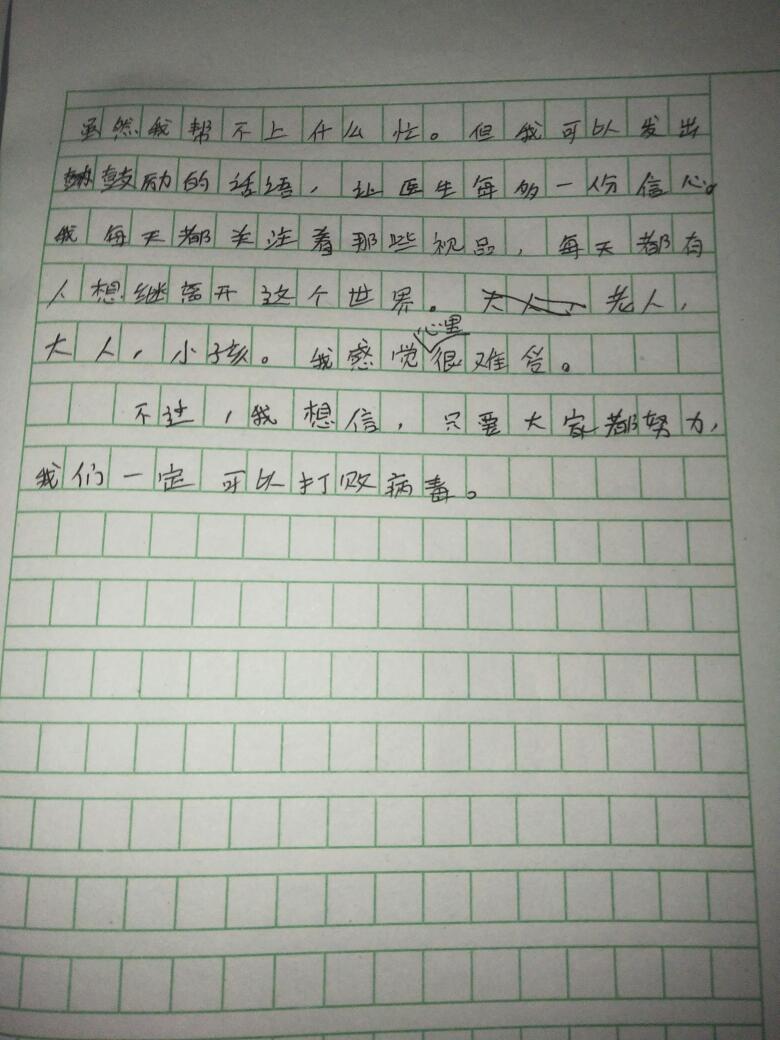 虽然我帮不上什么忙。但我可以发出
鼓励的话语，让医生每多一份信心。
我每天都关注着那些视品，每天都有
人想继离开这个世界。老人，
大人，小孩。我感觉心里很难受。
不过，我想信，只要大家都努力，
我们一定可以打败病毒。